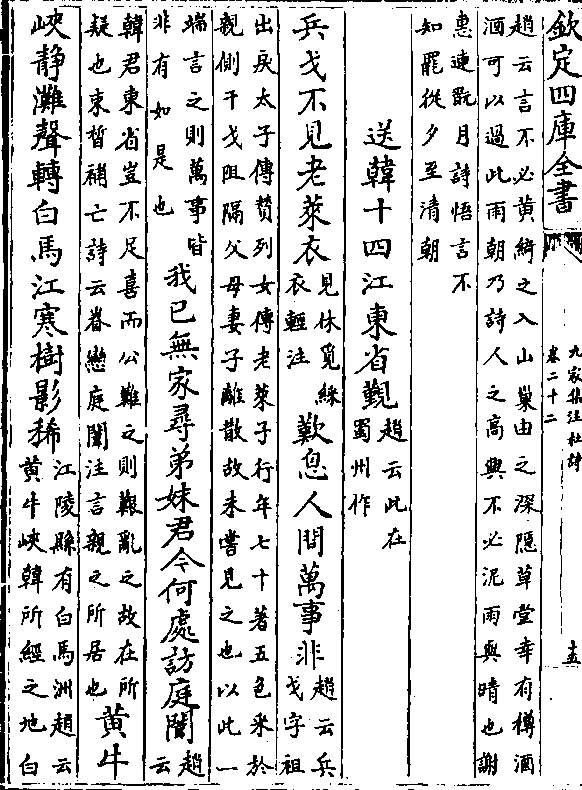 欽定四庫全書
九家集注杜詩
卷二十二
十五
趙云言不必黄綺之入山巢由之深隱草堂幸有樽酒
酒可以過此雨朝乃詩人之高興不必泥雨與晴也謝
惠連翫月詩悟言不
知罷從夕至清朝
送韓十四江東省覲趙云此在
蜀州作
兵戈不見老萊衣見休覓綵
衣輕注
歎息人間萬事非趙云兵
戈字祖
出戾太子傳贊列女傳老萊子行年七十著五色采於
親側干戈阻隔父母妻子離散故未嘗見之也以此一
端言之則萬事皆
非有如是也
我已無家尋弟妹君今何處訪庭闈趙
云
韓君東省豈不足喜而公難之則艱亂之故在所
疑也束晳補亡詩云眷戀庭闈注言親之所居也
黄牛
峽静灘聲轉白馬江寒樹影稀江陵縣有白馬洲趙云
黄牛峽韓所經之地白